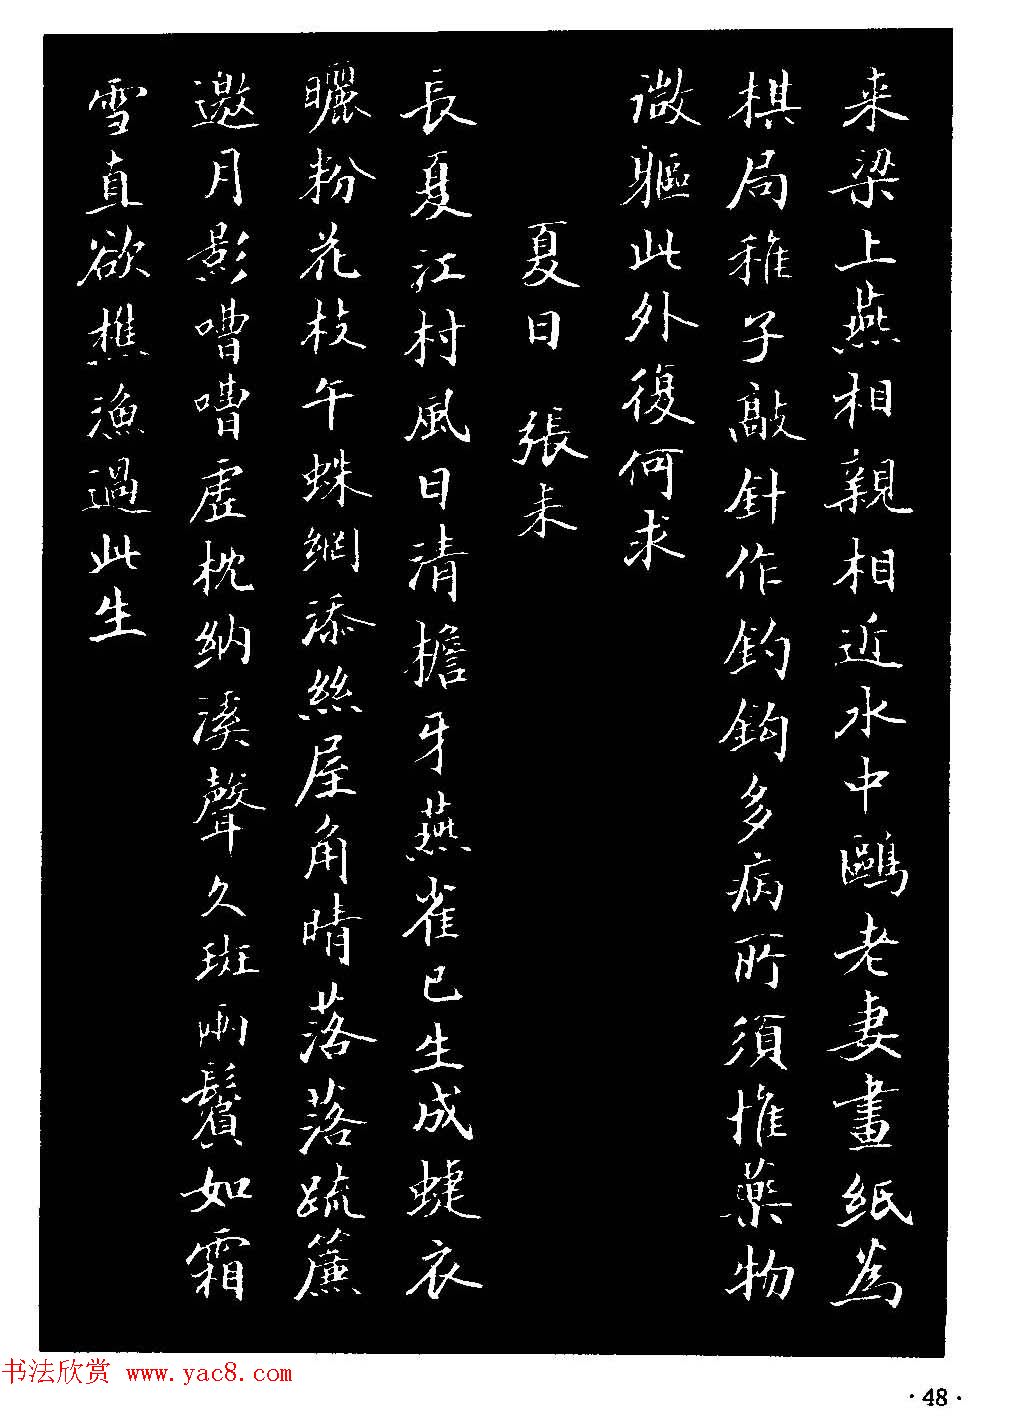 来梁上燕相親相近水中鷗老妻畫紙為
棋局稚子敲針作釣鈎多病所須惟藥物
微軀此外復何求
夏日 張耒
長夏江村風日清檐牙燕雀已生成蜨衣
曬粉花枝午蛛網添絲屋角晴落落疏簾
邀月影嘈嘈虛枕納溪聲久斑兩鬢如霜
雪直欲樵漁過此生
书法欣赏 www.yac8.com
·48·